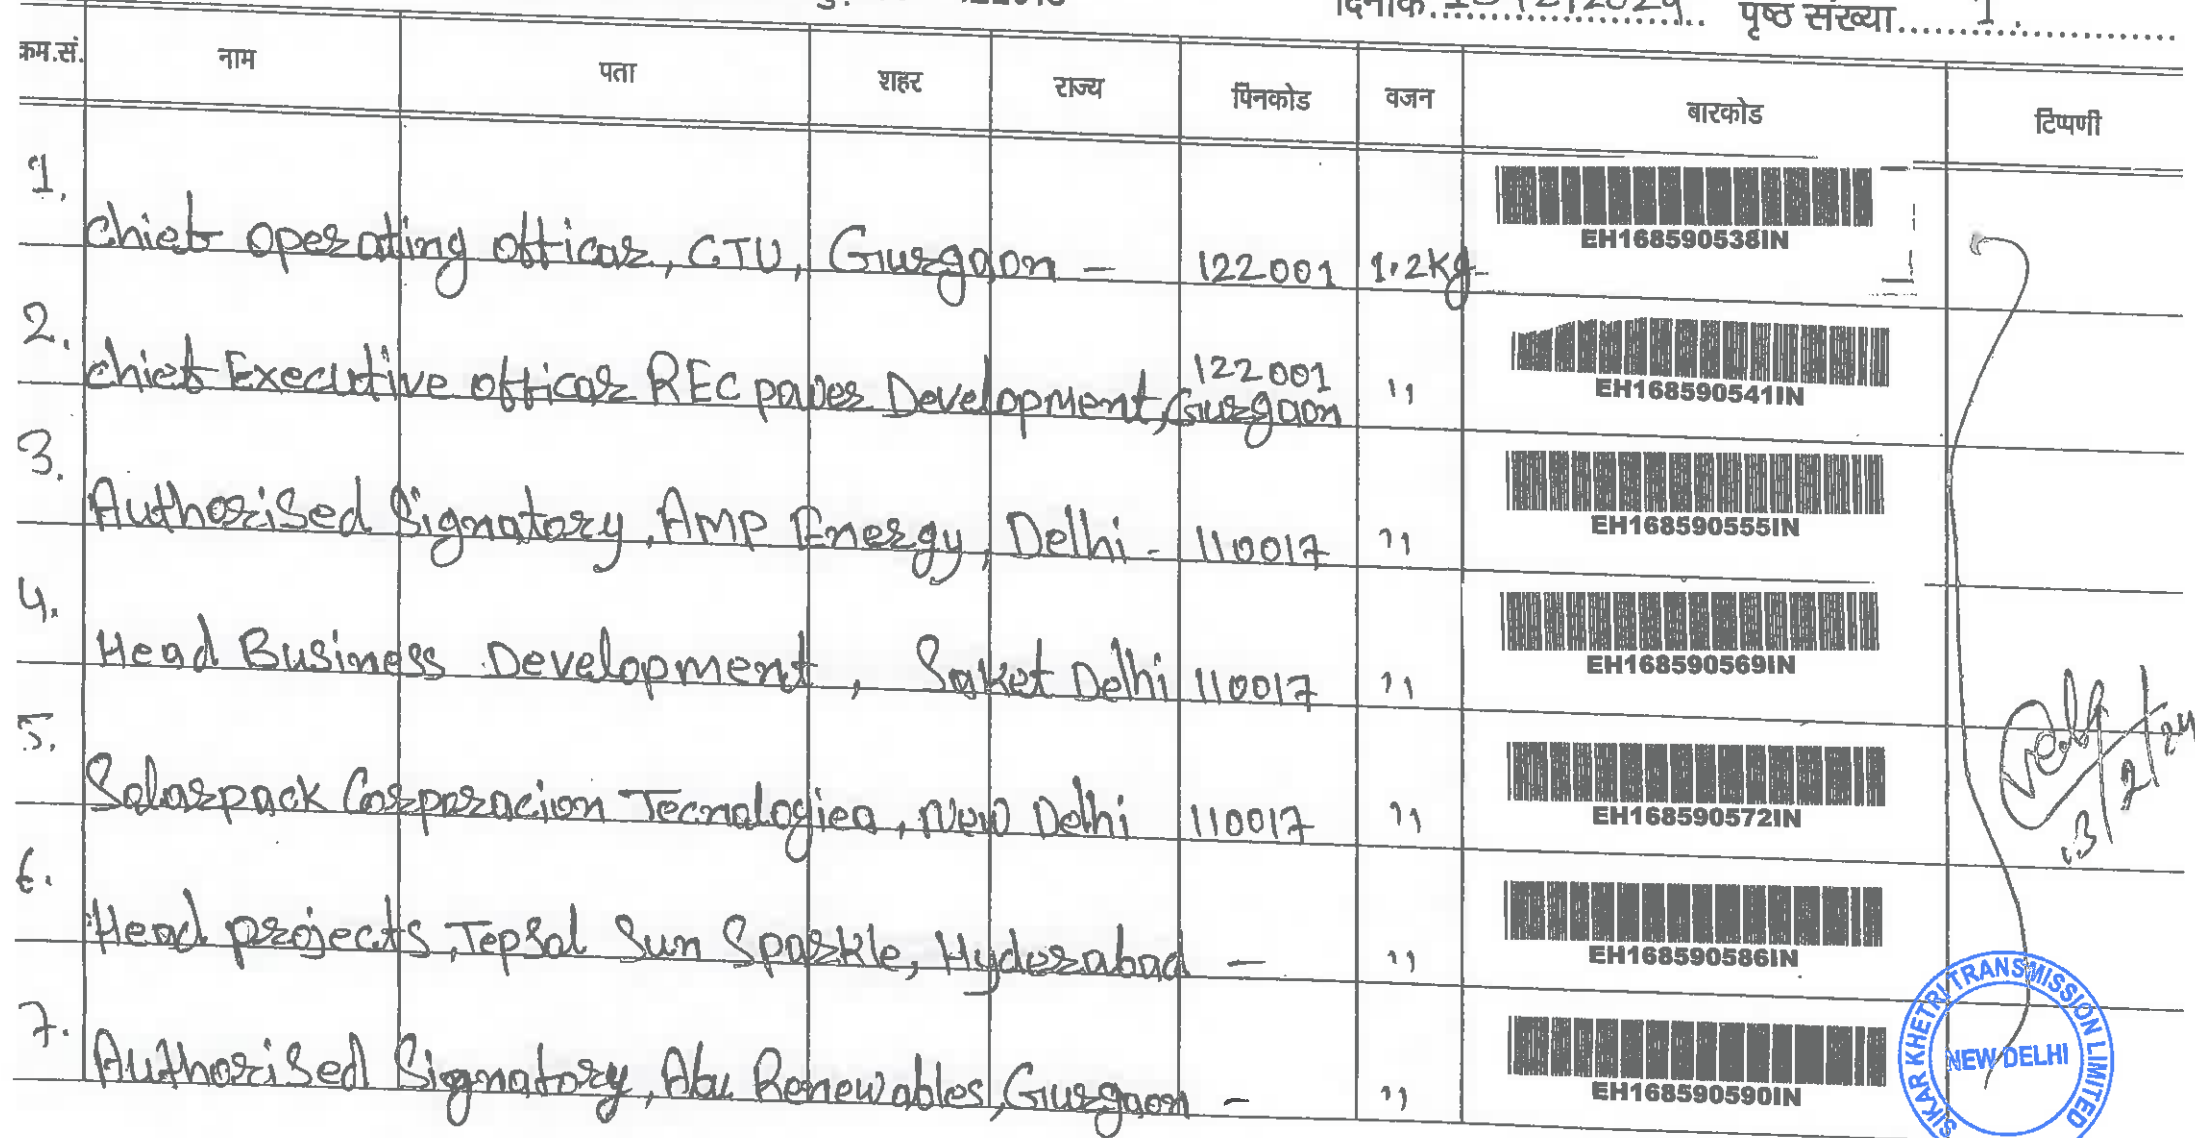 दिनांक 13/2/2024 पृष्ठ संख्या 1.
क्रम.सं. नाम पता शहर राज्य पिनकोड वजन बारकोड टिप्पणी
1. Chief Operating Officer, CTU, Gurgaon - 122001 1.2Kg EH168590538IN
2. Chief Executive officer REC power Development, Gurgaon 122001 " EH168590541IN
3. Authorised Signatory, AMP Energy, Delhi - 110017 " EH168590555IN
4. Head Business Development, Saket Delhi 110017 " EH168590569IN
5. Solarpack Corporacion Tecnologica, New Delhi 110017 " EH168590572IN
6. Head projects, Tepsol Sun Sparkle, Hyderabad - " EH168590586IN
7. Authorised Signatory, Abu Renewables, Gurgaon - " EH168590590IN
13/2/24
SIKAR KHETRI TRANSMISSION LIMITED
NEW DELHI